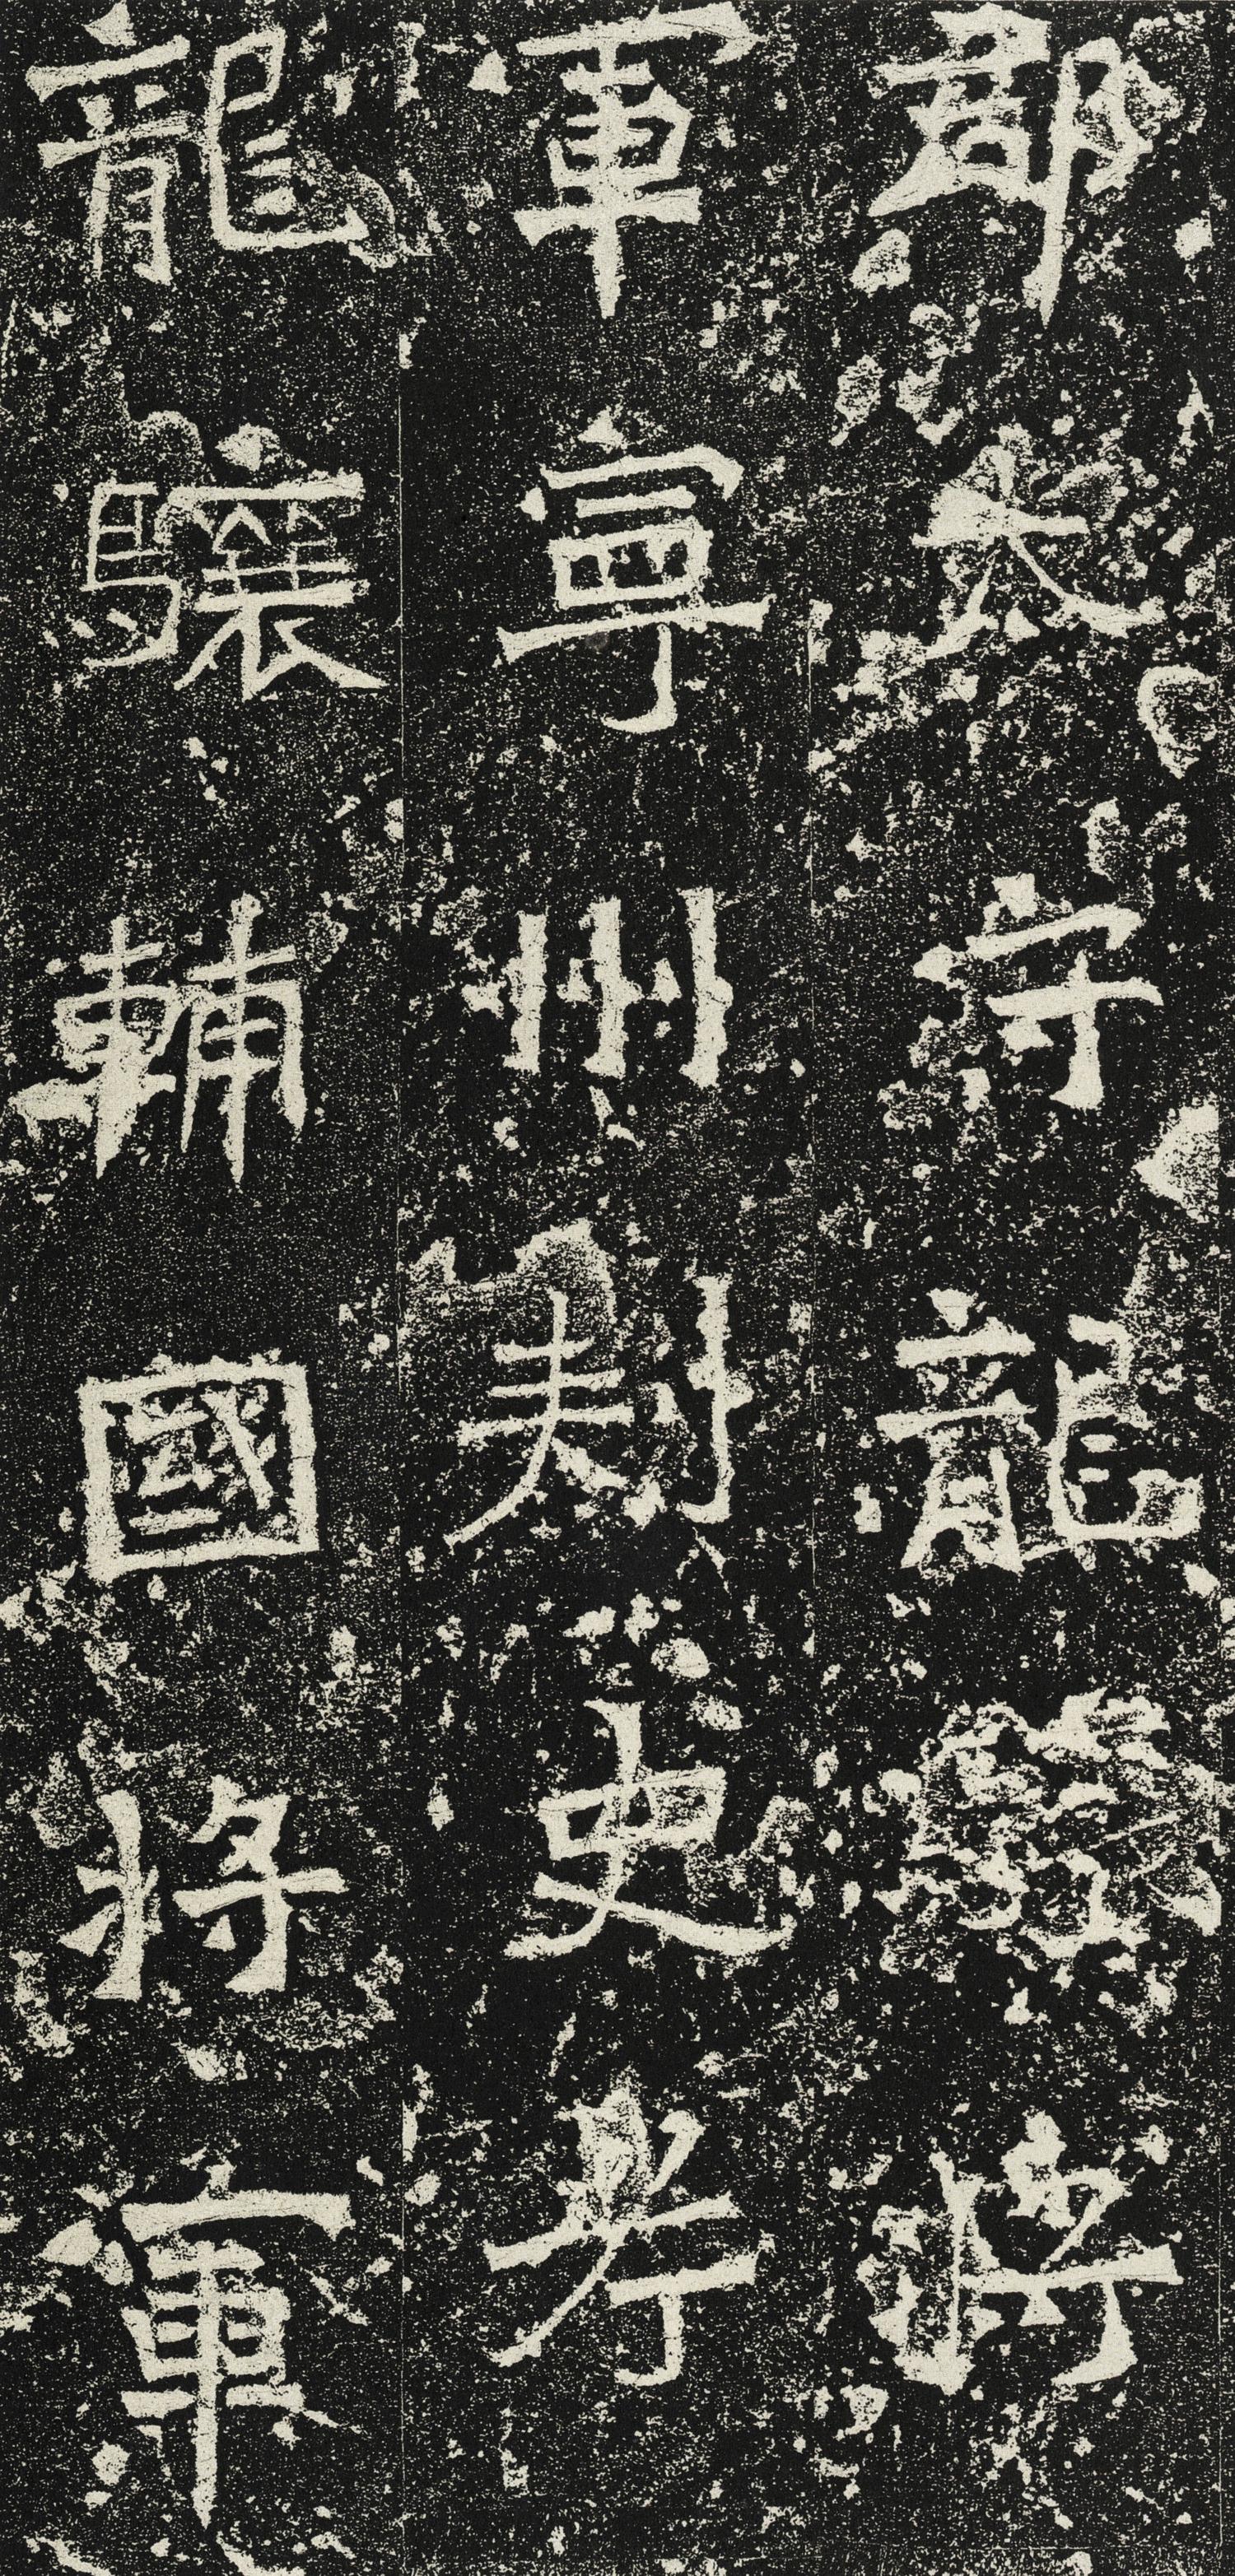 郡太守龍驤將
軍寧州刺史考
龍驤輔國將軍